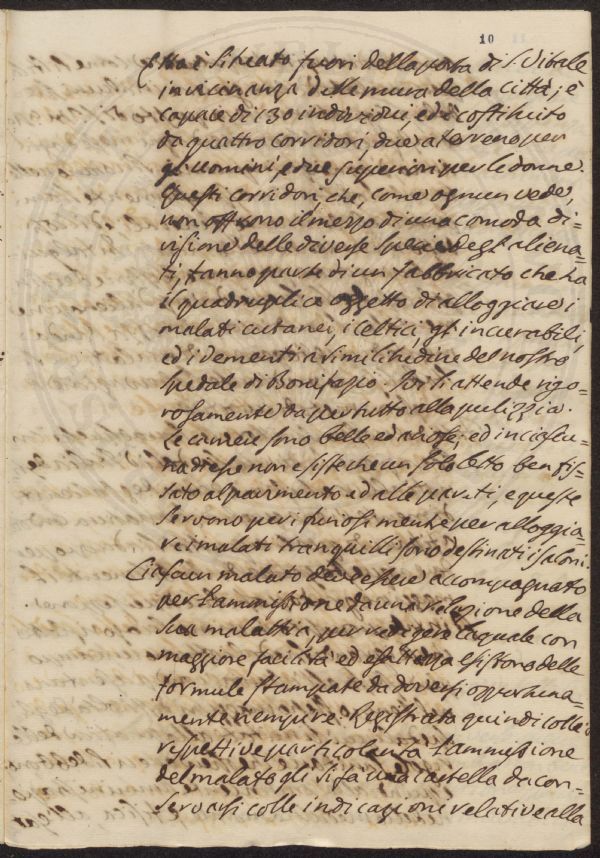 10
Esso è situato fuori della porta di S. Vitale
in vicinanza delle mura della città; è
capace di 130 individui, ed è costituito
da quattro corridori, due a terreno per
gl'uomini, e due superiori per le donne.
Questi corridori, che, come ognun vede,
non offrono il mezzo di una comoda di=
visione delle diverse specie degl'aliena=
ti, fanno parte di un fabbricato che ha
il quadruplice oggetto di alloggiare i
malati cutanei, i celtici, gl'incurabili,
ed i dementi a similitudine del nostro
spedale di Bonifazio. Ivi si attende rigo=
rosamente da per tutto alla pulizzia.
Le camere sono belle ed ariose, ed in ciascu=
na di esse non esiste che un solo letto ben fis=
sato al pavimento ed alle pareti, e queste
servono per i furiosi mentre per alloggia=
re i malati tranquilli sono destinati i saloni.
Ciascun malato deve essere accompagnato
per l'ammissione da una relazione della
sua malattia, per redigere la quale con
maggiore facilità ed esattezza esistono delle
formule stampate da doversi opportuna=
mente riempire. Registrata quindi colle
respettive particolarità l'ammissione
del malato gli si fa una cartella da con=
servarsi colle indicazioni relative alla